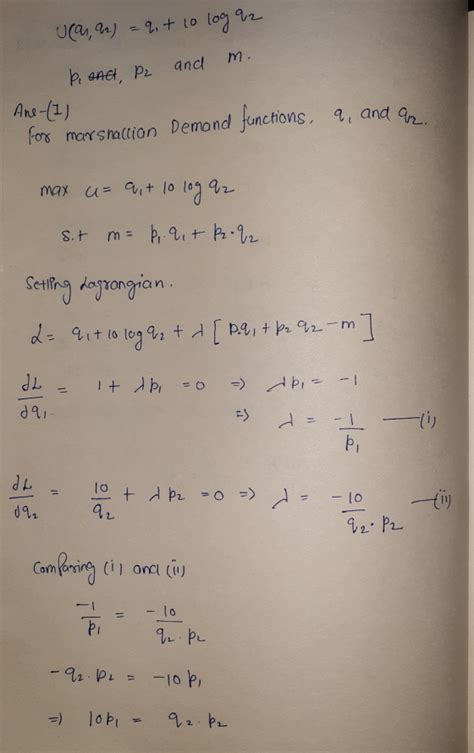 U(q₁,q₂) = q₁ + 10 log q₂
p₁ and, p₂ and m.
Ans-(1)
For marshallian Demand functions, q₁ and q₂.
max u = q₁ + 10 log q₂
s.t m = p₁.q₁ + p₂.q₂
Setting Lagrangian.
L = q₁ + 10 log q₂ + λ [ p.q₁ + p₂ q₂ - m ]
dL/dq₁ = 1 + λp₁ = 0 => λp₁ = -1
=> λ = -1/p₁ —(i)
dL/dq₂ = 10/q₂ + λp₂ = 0 => λ = -10/q₂.p₂ —(ii)
Comparing (i) and (ii)
-1/p₁ = -10/q₂.p₂
-q₂.p₂ = -10p₁
=> 10p₁ = q₂.p₂